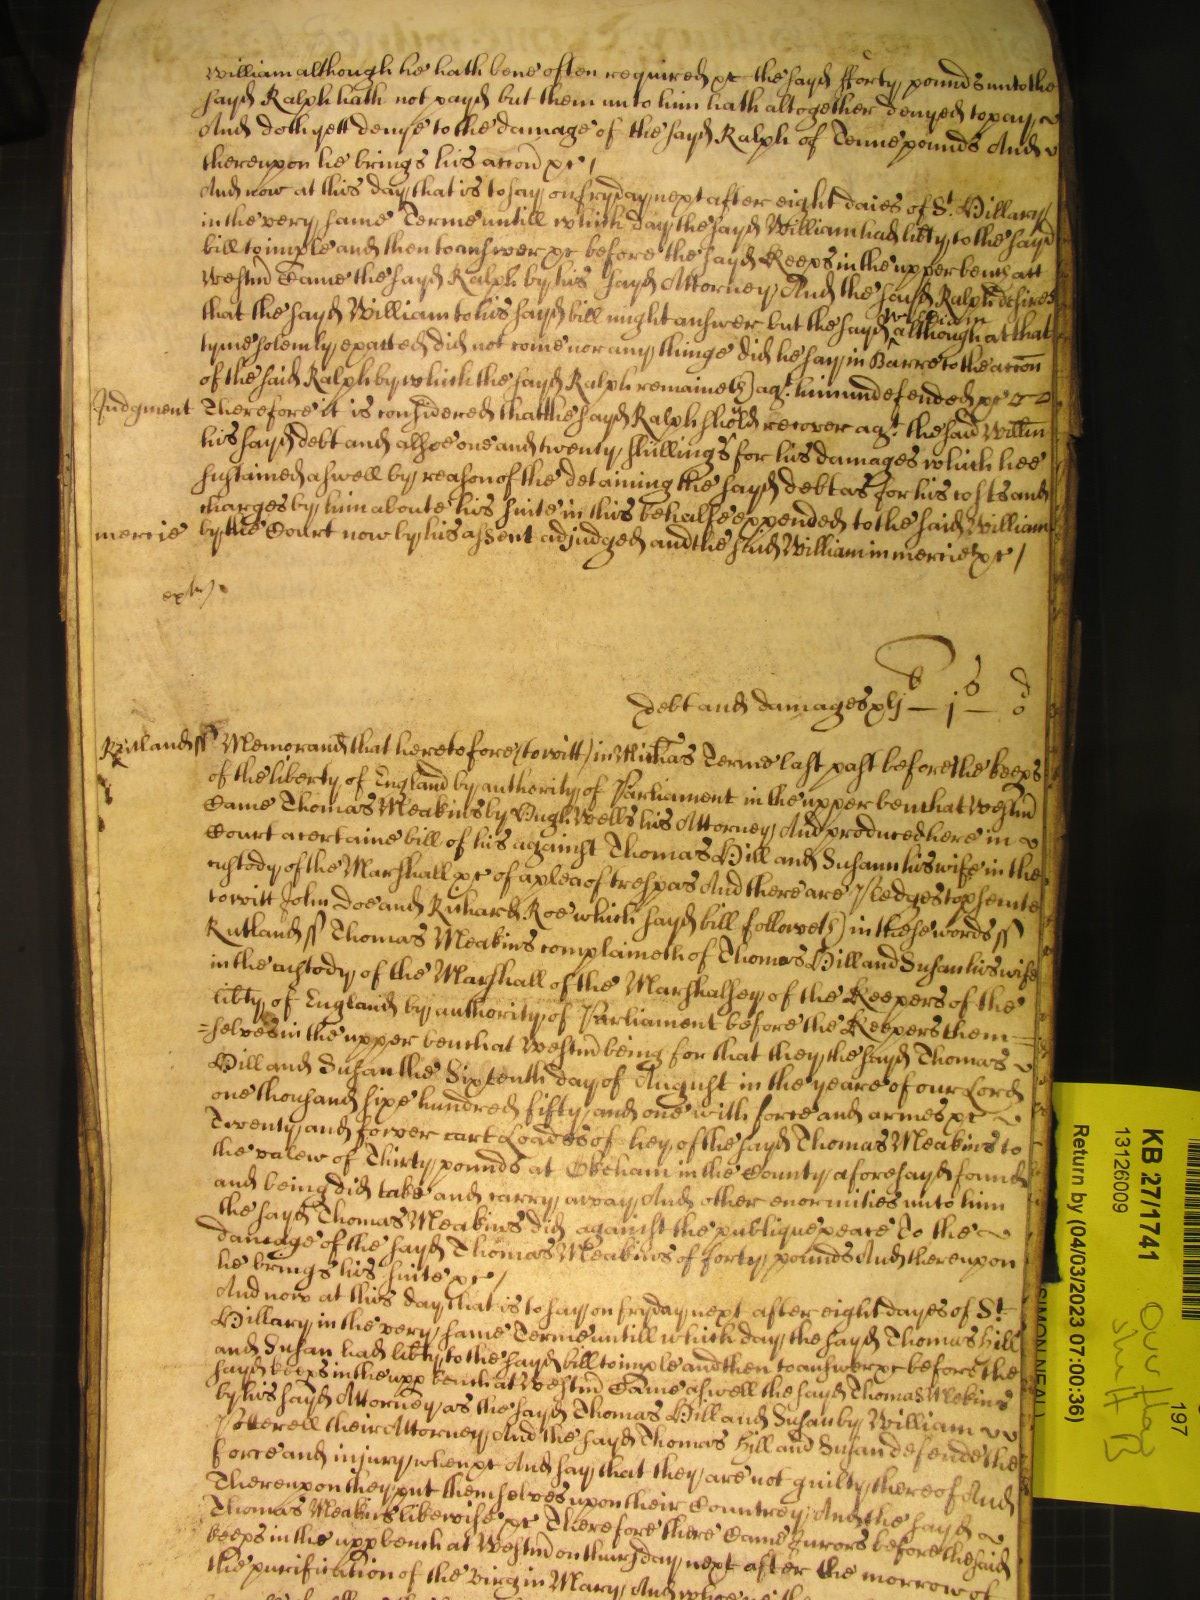 William although he hath bene often required &c the sayd fforty pounds unto the
sayd Ralph hath not payd but them unto him hath altogether denyed to pay
And doth yett denye to the damage of the sayd Ralph of Tenne pounds And
thereupon he brings his accon &c /
And now at this day that is to say on fryday next after eight daies of St. Hillary
in the very same Terme untill which day the sayd William had libty to the sayd
bill to imple and then to answer &c before the sayd Keeps in the upper bench att
Westmr Came the sayd Ralph by his sayd Attorney And the sayd Ralph desires
that the sayd William to his sayd bill might answer but the sayd William although at that
tyme solemly exacted did not come nor any thinge did he say in Barre to the accon
of the said Ralph by which the sayd Ralph remaineth agt. him undefended &c
Judgment Therefore it is considered that the sayd Ralph shold recover agt. the said Willm
his sayd debt and alsoe one and twenty shillings for his damages which hee
sustained aswell by reason of the detaining the sayd debt as for his costs and
charges by him aboute his suite in this behalfe expended to the said William
mercie by the Court now by his assent adjudged and the said William in mercie &c /
debt and damages xlj — j — o
li s d
Rutland ss Memorand that heretofore (to witt) in Michas Terme last past before the keeps
of the liberty of England by authority of Parliament in the upper bench at Westmr
Came Thomas Meakins by Hugh Wells his Attorney And produced here in
Court a certaine bill of his against Thomas Hill and Susann his wife in the
custody of the Marshall &c of a plea of trespas And there are Pledges to psecute
to witt John Doe and Richard Roe which sayd bill followeth in these words ss
Rutland ss Thomas Meakins complaineth of Thomas Hill and Susan his wife
in the custody of the Marshall of the Marshalsey of the Keepers of the
libty of England by authority of Parliament before the Keepers them=
=selves in the upper bench at Westmr being for that they the sayd Thomas
Hill and Susan the Sixtenth day of August in the yeare of our Lord
one thousand sixe hundred fifty and one with force and armes &c
Twenty and fower cart Loades of hey of the sayd Thomas Meakins to
the valew of Thirty pounds at Okeham in the County aforesayd found
and being did take and carry away And other enormities unto him
the sayd Thomas Meakins did against the publique peace To the
damage of the sayd Thomas Meakins of forty pounds And thereupon
he brings his suite &c /
And now at this day that is to say on fryday next after eight dayes of St.
Hillary in the very same Terme untill which day the sayd Thomas Hill
and Susan had libty to the sayd bill to imple and then to answer &c before the
sayd keeps in the upp bench at Westmr Came aswell the sayd Thomas Mekins
by his sayd Attorney as the sayd Thomas Hill and Susan by William
Potterell their Attorney And the sayd Thomas Hill and Susan defende the
force and injury when &c And say that they are not guilty thereof And
Thereupon they put themselves upon their Countrey And the sayd
Thomas Meakins likewise &c Therefore there Came Jurors before the said
keeps in the upp bench at Westmr on thursday next after the morrow of
the purification of the virgin Mary And
KB 27/1741
13126009
Return by (04/03/2023 07:00:36)
SIMON NEAL
197